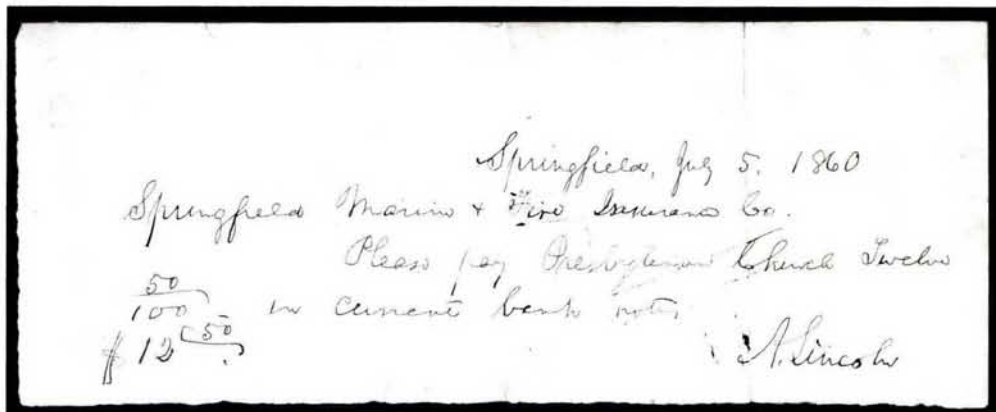 Springfield, July 5. 1860
Springfield Marine & Fire Insurance Co.
Please pay Presbyterian Church Twelve
50/100 in current bank notes
$12 50
A. Lincoln